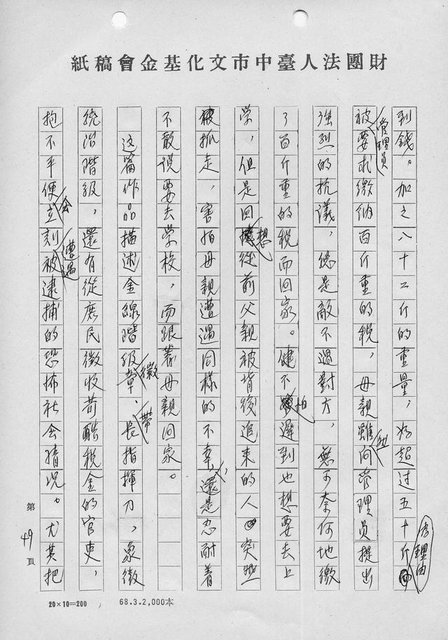 財團法人臺中市文化基金會稿紙
到錢。加之八十二斤的重量,超過五十斤為理由
被管理員要求繳納百斤重的稅,母親雖向管理員提出
強烈的抗議,總是敵不過對方,無可奈何地繳
了百斤重的稅而回家。健不怕遲到也想要去上
學,但是回想從前父親被背後追來的人突然
被抓走,害怕母親遭遇同樣的不幸,還是忍耐着
不敢說要去學校,而跟著母親回家。
這篇作品描述金線階級徽章、帶長指揮刀,象徵
統治階級,還有從庶民徵收苛酷稅金的官吏,
抱不平便會立刻遭遇被逮捕的恐怖社會情況。尤其把
第49頁
20×10=200 68.3.2,000本